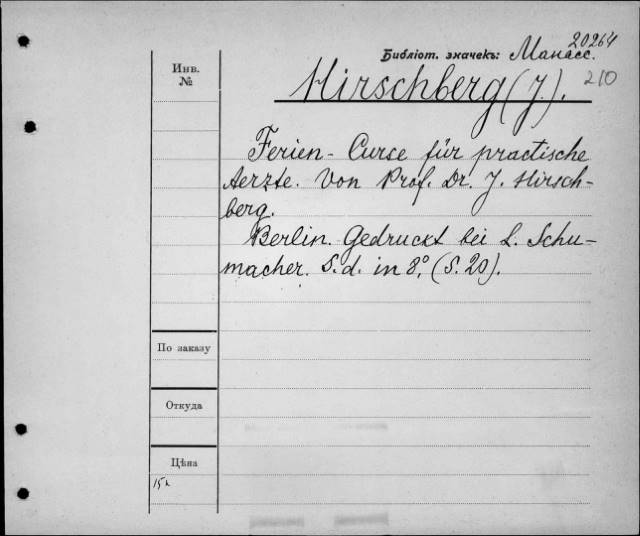 20264
Библіот. значекъ: Манасс.
Инв.
№
Hirschberg (J.).
210
Ferien - Curse für practische
Aerzte. Von Prof. Dr. J. Hirsch-
berg.
Berlin. Gedruckt bei L. Schu-
macher. S. d. in 8°. (S. 20).
По заказу
Откуда
Цѣна